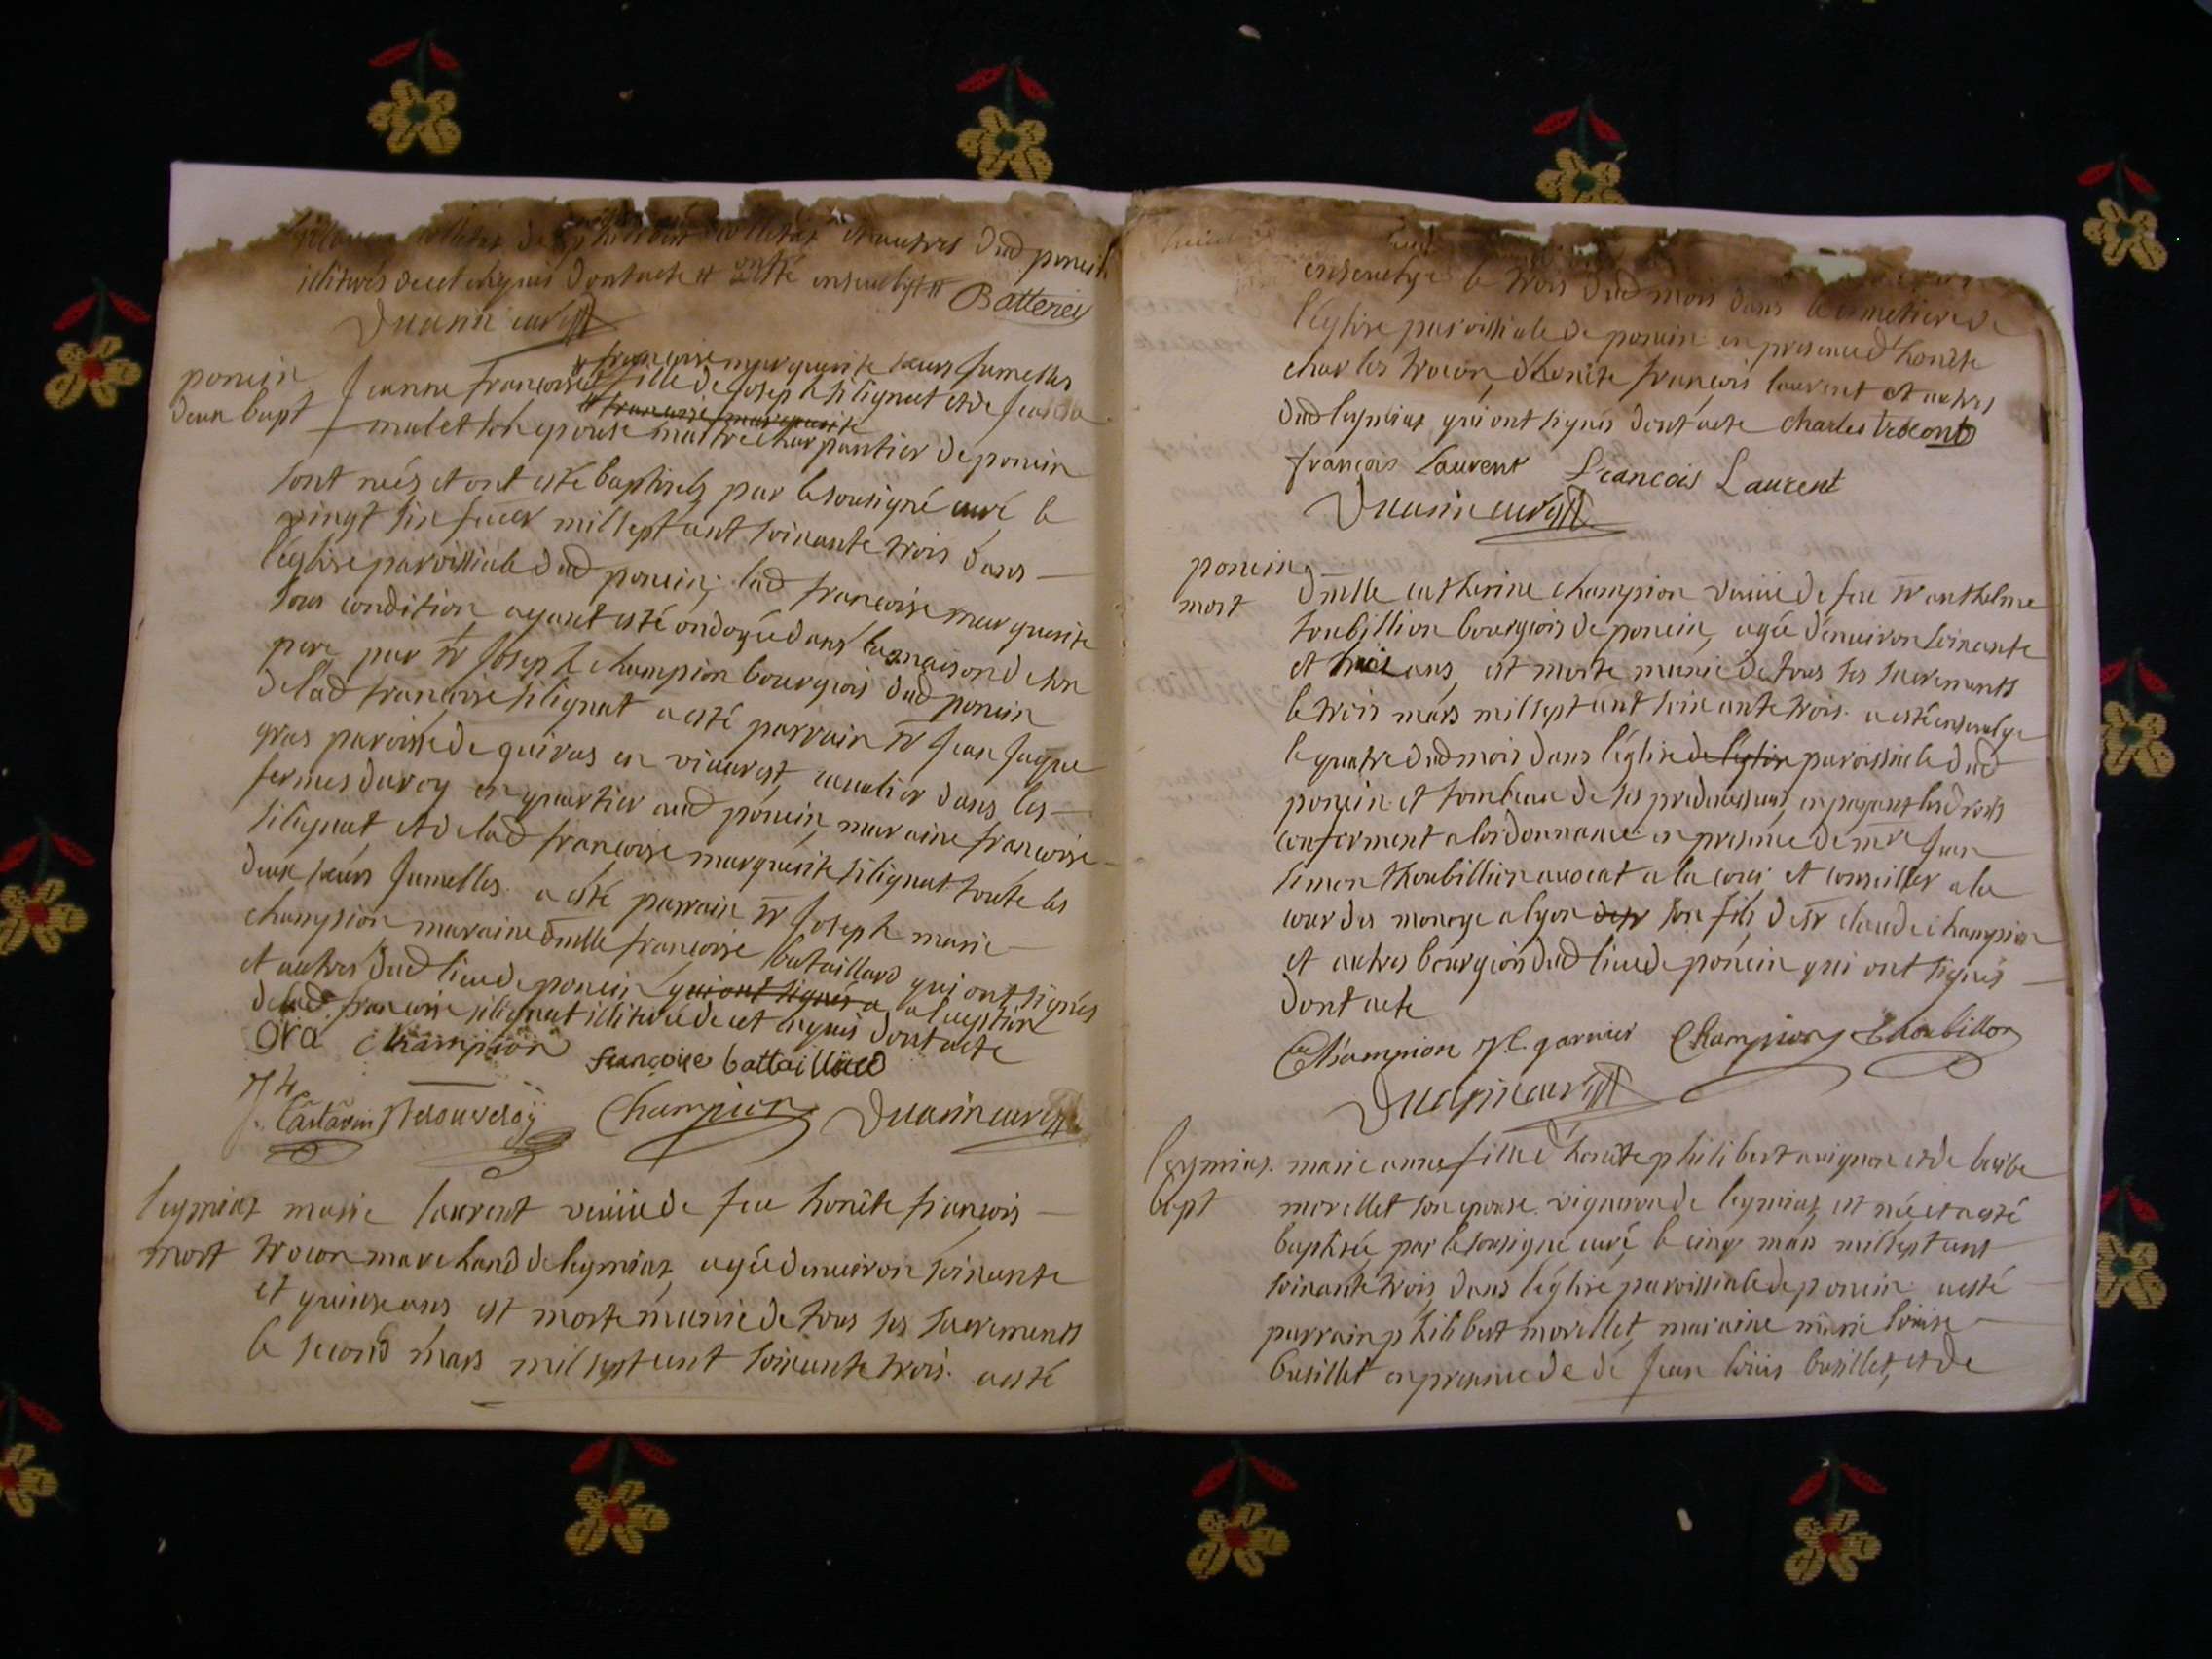 et autres dud poncin
illiturés decet enquis dont acte # ont esté enseuelys # Batterier
Duanin curé
poncin
deux bapt
# francoise marguerite sœurs jumelles
Jeanne francoise # fille de joseph silignat et de jeanne
# francoise marguerite
mulet son epouse maitre charpantier de poncin
sont neés et ont esté baptisés par le sousigné curé le
vingt six feuer mil sept cent soixante trois dans
l'églize paroissiale dud poncin; lad francoise marguerite
sous condition ayant esté ondoyée dans la maison de son
pere par sr Joseph champion bourgois dud poncin
delad francoise silignat a esté parrain sr jean jaque
gras paroisse de quiras en viuarest caualier dans les
fermes du roy en quartier aud poncin, maraine francoise
silignat, et delad francoise marguerite silignat toute les
deux sœurs jumelles. a esté parrain sr joseph marie
champion maraine dmlle francoise bataillard qui ont signés
et autres dud lieu de poncin qui ont signés a a l'ception
delad francoise silignat illiturée de cet enquis dont acte
Gra champion francoise battaillard
Champion Duanin curé
legmias
mort
marie laurent veuüe de feu honête francois
trocon marchand de legmias, agée denuiron soixante
et quinse ans, est morte munie de tous ses sacrements
le second mars mil sept cent soixante trois. a esté
enseuelye le trois dud mois dans le cimetiere de
l'églize paroissiale de poncin en presence d'honête
charles trocon, d'honête francois laurent et autres
dud legmias qui ont signés dont acte charles trocond
francois Laurent francois Laurent
Duanin curé
poncin
mort
dmlle catherine champion veuüe de feu sr anthelme
toubillion bourgois de poncin, agée d'enuiron soixante
et trois ans, est morte munie de tous ses sacrements
le trois mars mil sept cent soixante trois. a esté enseuelye
le quatre dud mois dans l'églize de l'églize paroissiale dud
poncin et tombeau de ses predecesseurs, en payant les droits
conforment a lordonnance en presence de mre jean
simon thoubillion auocat a la cour et conseiller a la
cour des monoye a lyon de sr son fils, de sr claude champion
et autres bourgois dud lieu de poncin qui ont signés
dont acte
Champion J.C. garnier Champion Thoubillon
Duanin curé
legmias.
bapt
marie anne fille d'honête philibert auignon et de barbe
morellet son epouse. vigneron de legmias, est née et a esté
baptisée par le sousigné curé, le cinq mars mil sept cent
soixante trois, dans l'églize paroissiale de poncin a esté
parrain philibert morellet, maraine marie loüise
busillet en presence de de jean loüis busillet, et de